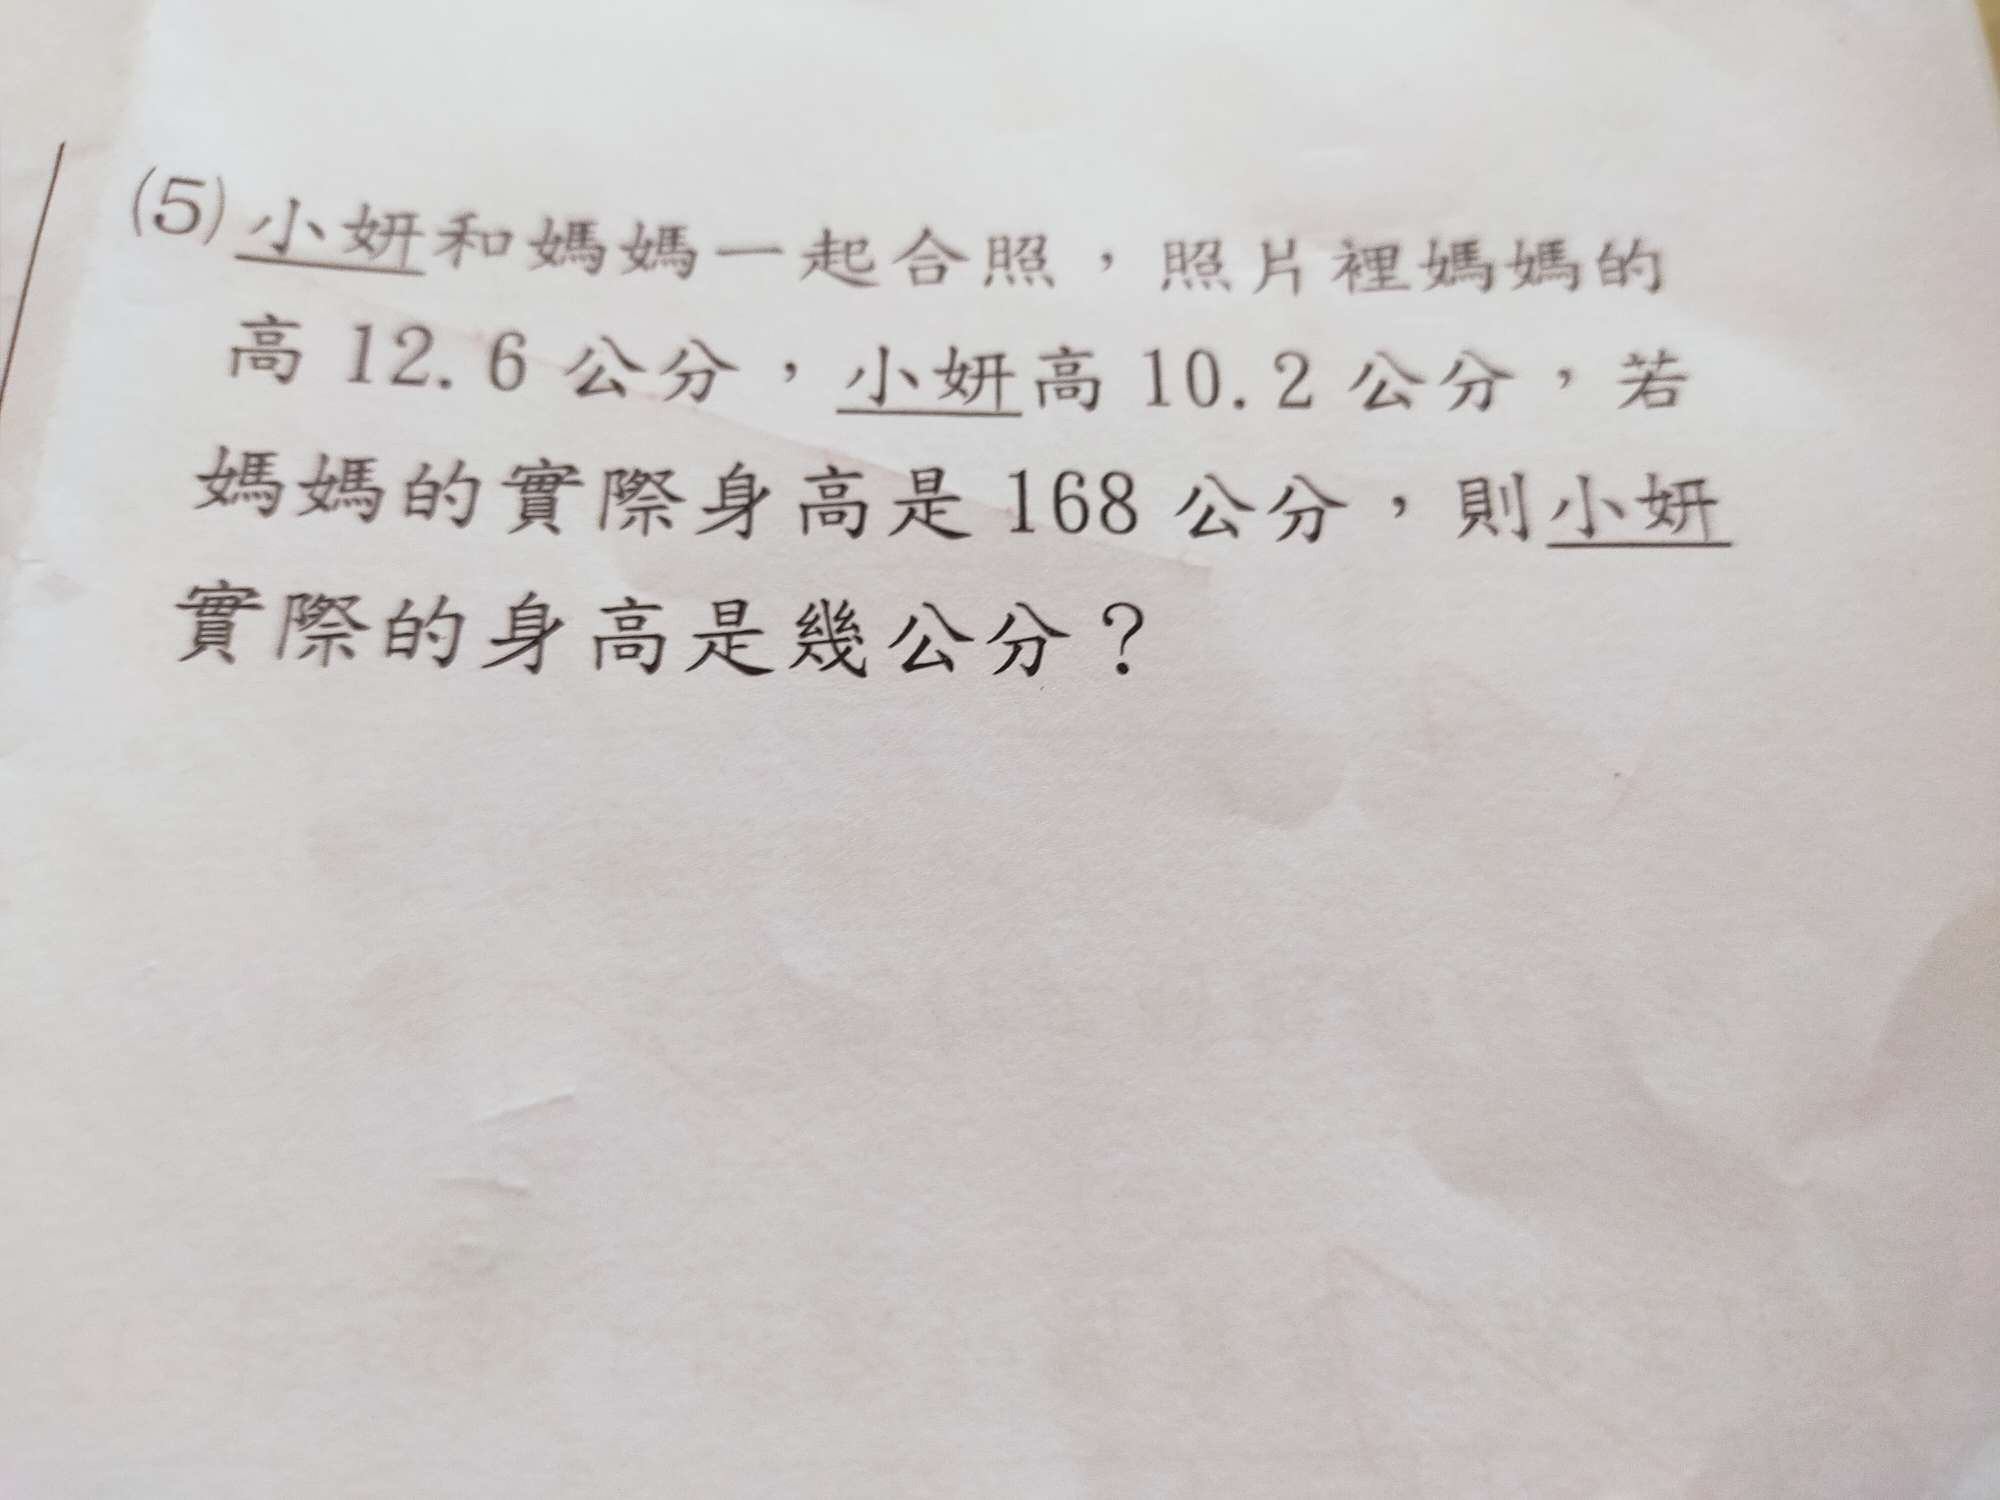 (5)小妍和媽媽一起合照，照片裡媽媽的
高 12.6 公分，小妍高 10.2 公分，若
媽媽的實際身高是 168 公分，則小妍
實際的身高是幾公分？